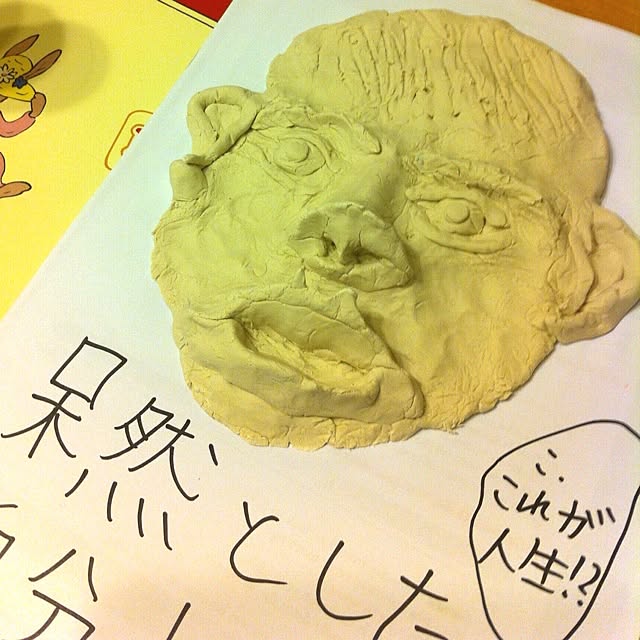 呆然とした
分
こ、
これが
人生!?